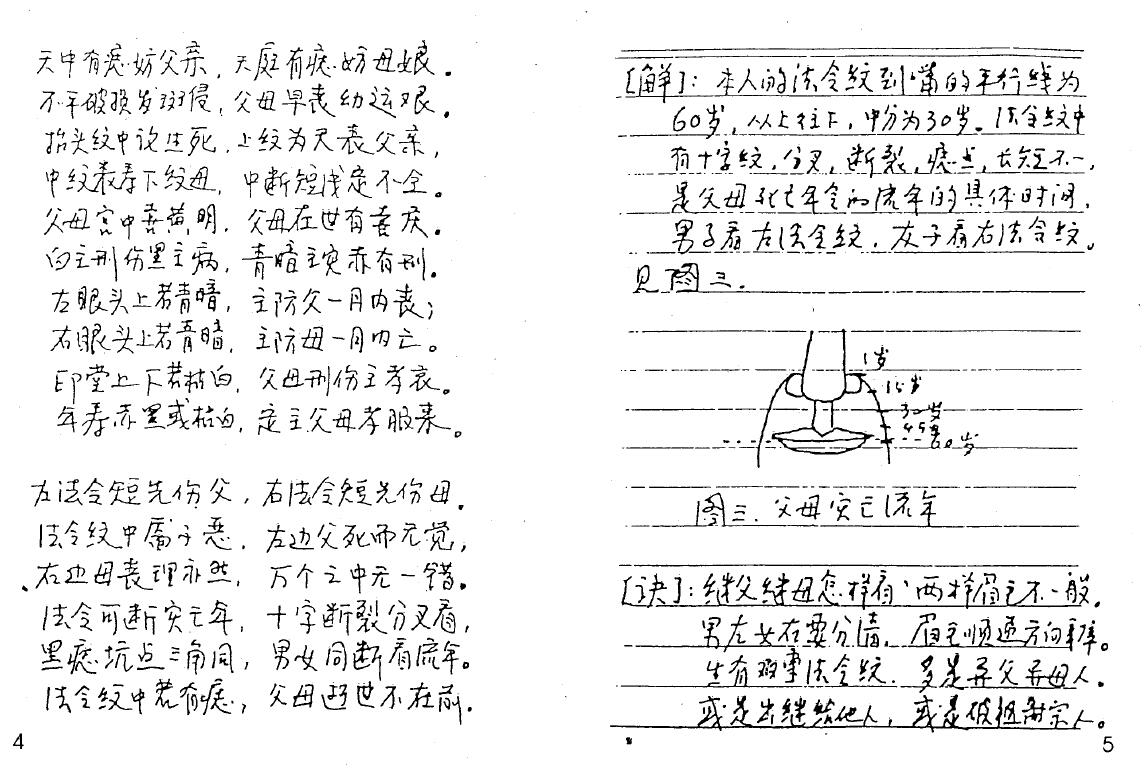 天中有痣妨父亲,天庭有痣妨母娘。
不平破损发斑侵,父母早丧幼运艰。
抬头纹中论生死,上纹为天表父亲,
中纹表寿下纹母,中断短浅定不全。
父母宫中喜黄明,父母在世有喜庆。
白主刑伤黑主病,青暗主灾赤有刑。
左眼头上若青暗,主防父一月内丧;
右眼头上若青暗,主防母一月内亡。
印堂上下若枯白,父母刑伤主孝哀。
年寿赤黑或枯白,定主父母孝服来。
左法令短先伤父,右法令短先伤母。
法令纹中属子恶,左边父死而无觉,
右边母丧理亦然,万个之中无一错。
法令可断灾亡年,十字断裂分叉看,
黑痣坑点三角同,男女同断看流年。
法令纹中若有痣,父母逝世不在前。
4
[解]:本人的法令纹到嘴的平行线为
60岁,从上往下,中分为30岁。法令纹中
有十字纹,分叉,断裂,痣点,长短不一,
是父母死亡年令的流年的具体时间,
男子看左法令纹,女子看右法令纹。
见图三.
1岁
15岁
30岁
45岁
60岁
图三.父母灾亡流年
[诀]:继父继母怎样看,两样眉毛不一般。
男左女右要分清,眉毛顺逆方向乖。
生有双重法令纹.多是异父异母人。
或是出继给他人,或是破祖离宗人。
5